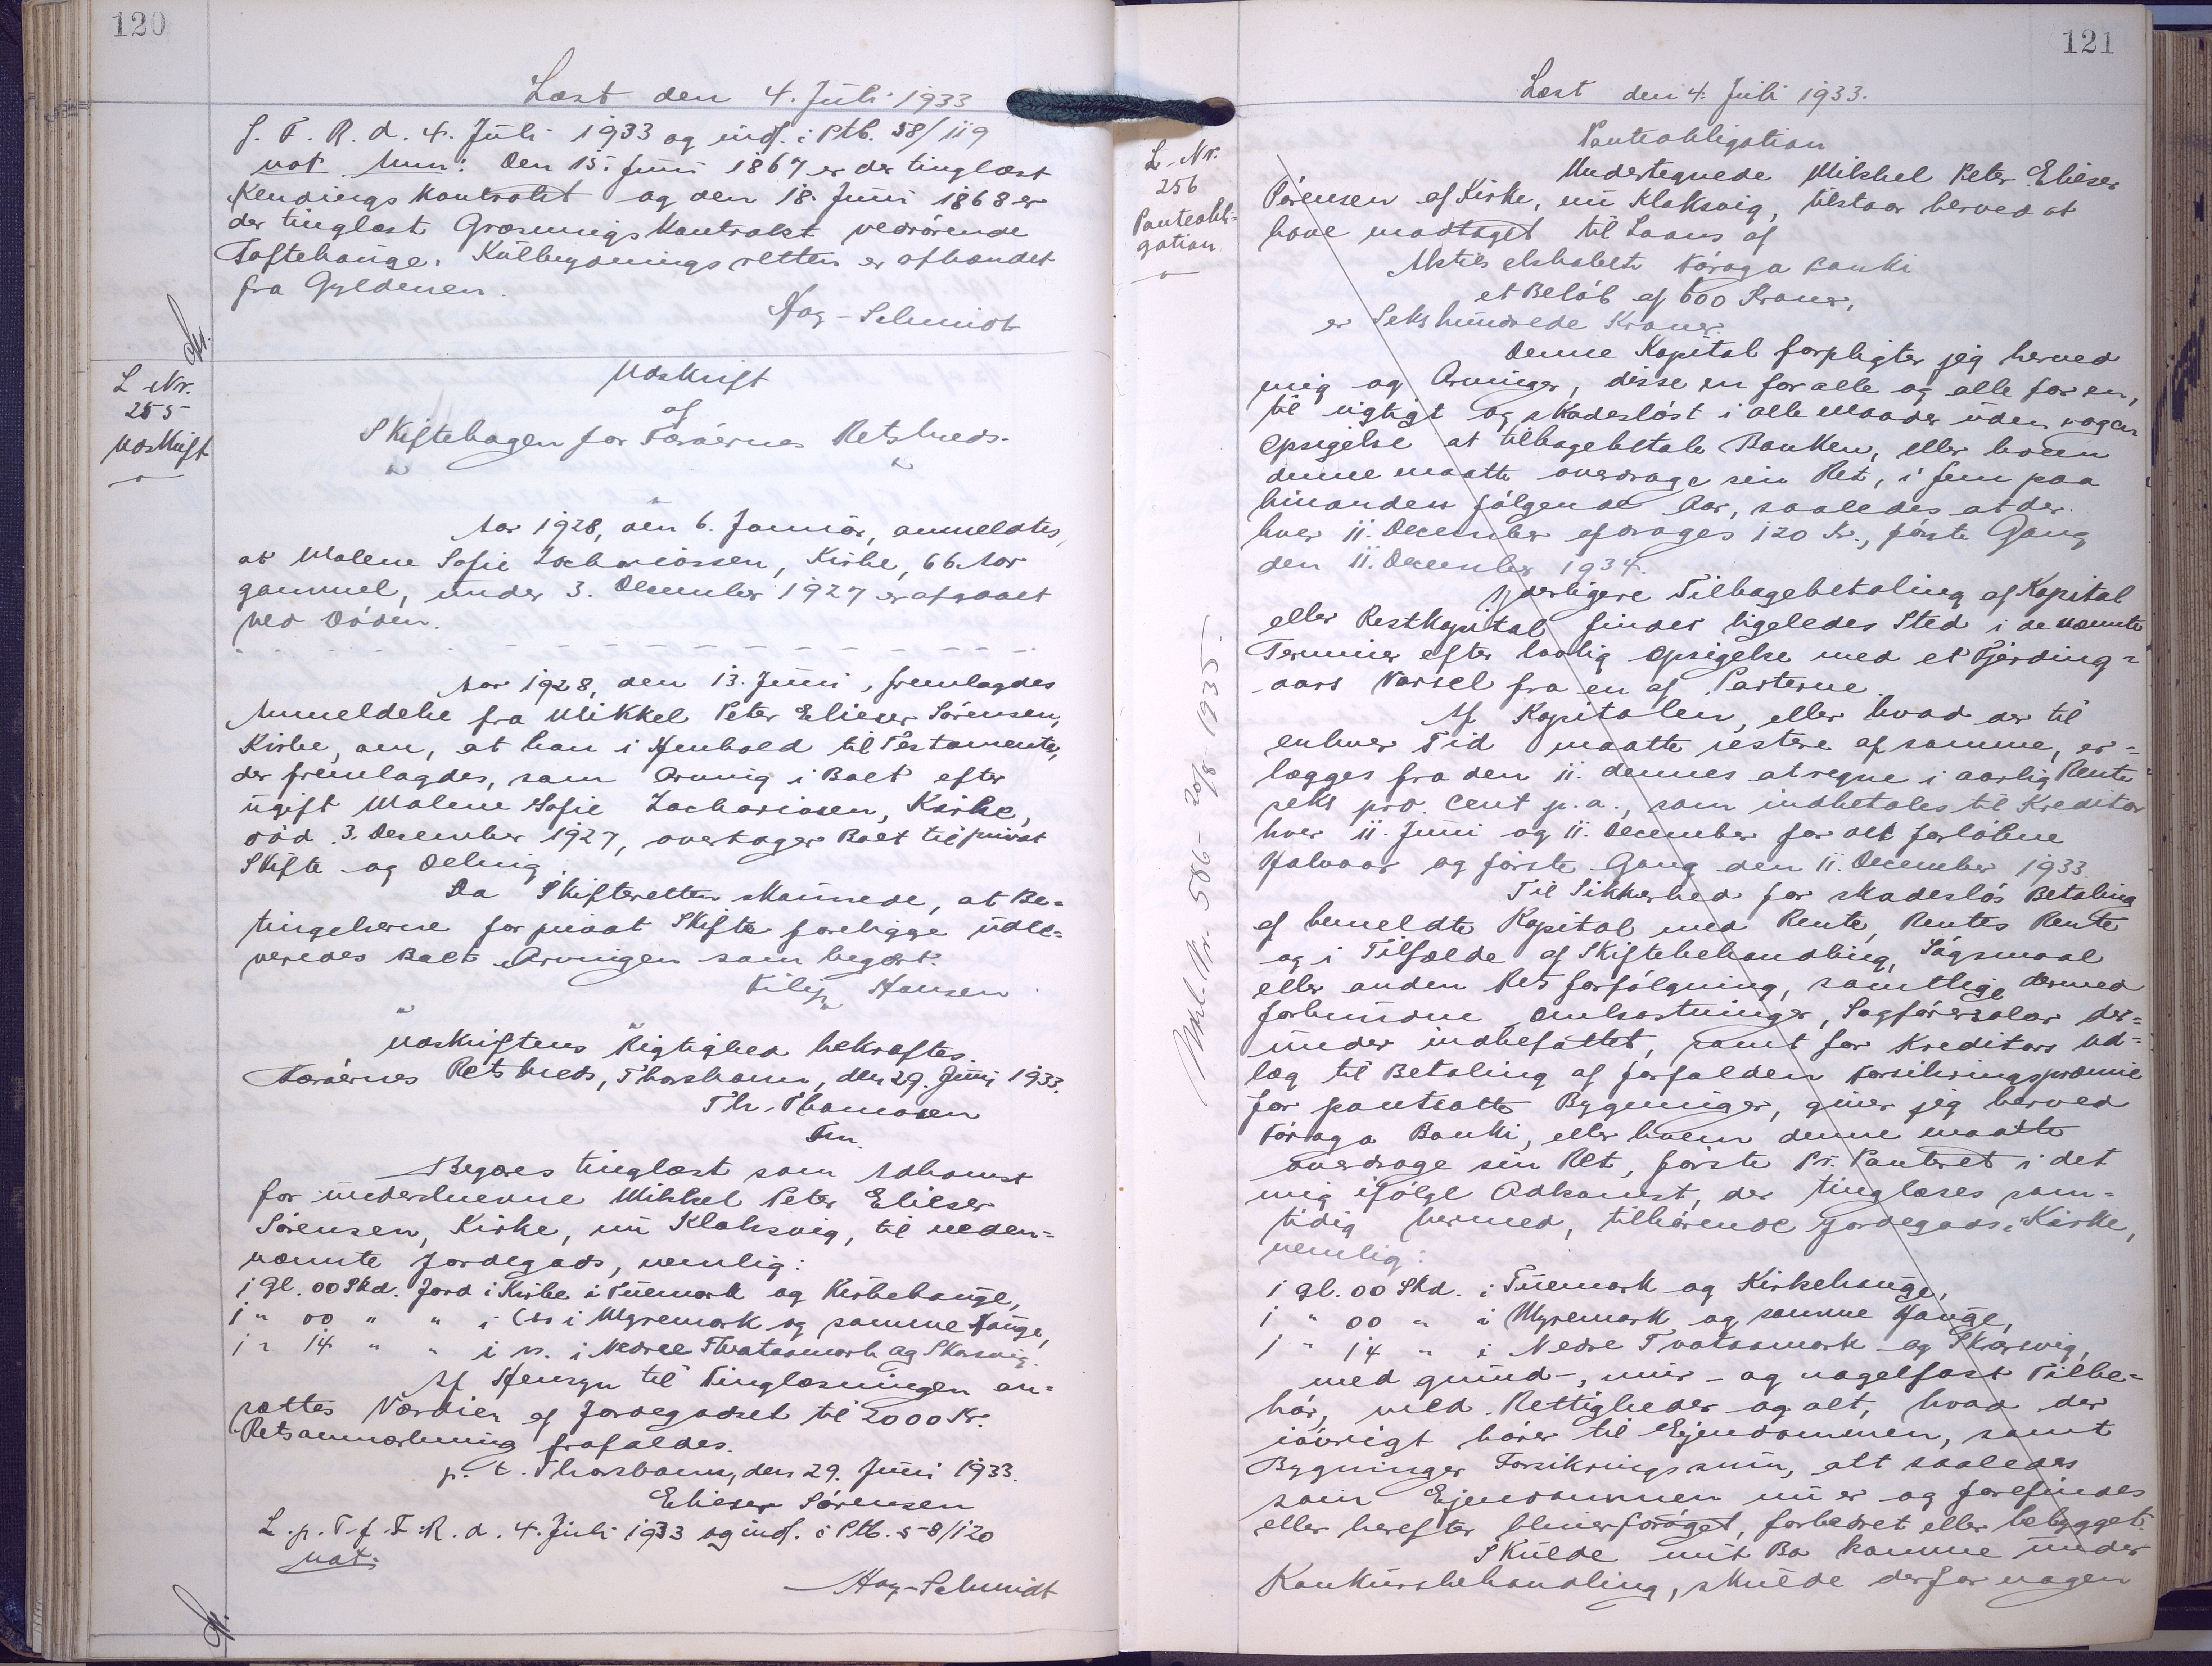 120
Læst den 4. Juli 1933
f. F. R. d. 4. Juli 1933 og indf. i Ptb. 58/119
not Anm: Den 15. Juni 1867 er der tinglæst
Kendings kontrakt og den 18. Juni 1868 er
der tinglæst Græsningskontrakt vedrörende
Toftehauge. Kulbrydningsretten er afhændet
fra Gyldenen.
Høg-Schmidt
L Nr.
255
Udskrift
Udskrift
af
Skiftebogen for Færöernes Retskreds.
Aar 1928, den 6. Januar, anmeldtes,
at Malene Sofie Zachariassen, Kirke, 66 Aar
gammel, under 3. December 1927 er afgaaet
ved Döden.
Aar 1928, den 13. Juni, fremlagdes
Anmeldelse fra Mikkel Peter Elieser Sörensen,
Kirke, om, at han i Henhold til Testamente,
der fremlagdes, som Arving i Boet efter
ugift Malene Sofie Zachariasen, Kirke,
död 3. December 1927, overtager Boet til privat
Skifte og Deling.
Da Skifteretten skönnede, at Be-
tingelserne for privat Skifte foreligge udle-
veredes Boet Arvingen som begært.
Filip Hansen
Udskriftens Rigtighed bekræftes.
Færöernes Retskreds, Thorshavn, den 29. Juni 1933.
Th. Thomasen
Fm.
Begæres tinglæst som Adkomst
for underskrevne Mikkel Peter Elieser
Sörensen, Kirke, nu Klaksvig, til neden-
nævnte Jordegods, nemlig:
1 gl. 00 Skd. Jord i Kirke i Tuemark og Kirkehauge,
1 " 00 " " i i Myremark og samme Hauge,
1 " 14 " " i i Nedre Tvataamark og Skarsvig.
Af Hensyn til Tinglæsningen an-
sættes Værdien af Jordegodset til 2000 Kr.
Retsanmærkning frafaldes.
p. t. Thorshavn, den 29. Juni 1933.
Elieser Sörensen
L. p. T. f. F. R. d. 4. Juli 1933 og indf. i Ptb. 58/120
not.
Høg-Schmidt
121
Læst den 4. Juli 1933.
L. Nr.
256
Panteobli-
gation
Udsl. Nr. 586 - 20/8-1935.
Panteobligation
Undertegnede Mikkel Peter Elieser
Sörensen af Kirke, nu Klaksvig, tilstaar herved at
have modtaget til Laans af
Aktieselskabet Föroya Banki
et Belöb af 600 Kroner,
er Sekshundrede Kroner.
Denne Kapital forpligter jeg herved
mig og Arvinger, disse en for alle og alle for en,
til rigtigt og skadeslöst i alle Maader uden nogen
Opsigelse at tilbagebetale Banken, eller hvem
denne maatte overdrage sin Ret, i fem paa
hinanden fölgende Aar, saaledes at der
hver 11. December afdrages 120 Kr., förste Gang
den 11. December 1934.
Yderligere Tilbagebetaling af Kapital
eller Restkapital finder ligeledes Sted i de nævnte
Terminer efter lovlig Opsigelse med et Fjerding-
aars Varsel fra en af Parterne.
Af Kapitalen, eller hvad der til
enhver Tid maatte restere af samme, er-
lægges fra den 11. dennes at regne i aarlig Rente
seks pro. cent p. a., som indbetales til Kreditor
hver 11. Juni og 11. December for det forlöbne
Halvaar og förste Gang den 11. December 1933.
Til Sikkerhed for skadeslös Betaling
af bemeldte Kapital med Rente, Rentes Rente
og i Tilfælde af Skiftebehandling, Sögsmaal
eller anden Retsforfölgning, samtlige dermed
forbundne Omkostninger, Sagförersalær der-
under indbefattet, samt for Kreditors Ud-
læg til Betaling af forfalden Forsikringspræmie
for pantsatte Bygninger, giver jeg herved
Föroya Banki, eller hvem denne maatte
overdrage sin Ret, förste Pr. Panteret i det
mig ifölge Adkomst, der tinglæses sam-
tidig hermed, tilhörende Jordegods i Kirke,
nemlig:
1 gl. 00 Skd. i Tuemark og Kirkehauge,
1 " 00 " i Myremark og samme Hauge,
1 " 14 " i Nedre Tvataamark og Skarsvig,
med grund-, mur- og nagelfast Tilbe-
hör, med Rettigheder og alt, hvad der
iövrigt hörer til Ejendommen, samt
Bygninger Forsikringssum, alt saaledes
som Ejendommen nu er og forefindes
eller herefter bliver foröget, forbedret eller bebygget.
Skulde mit Bo komme under
Konkursbehandling, skulde derfor nogen